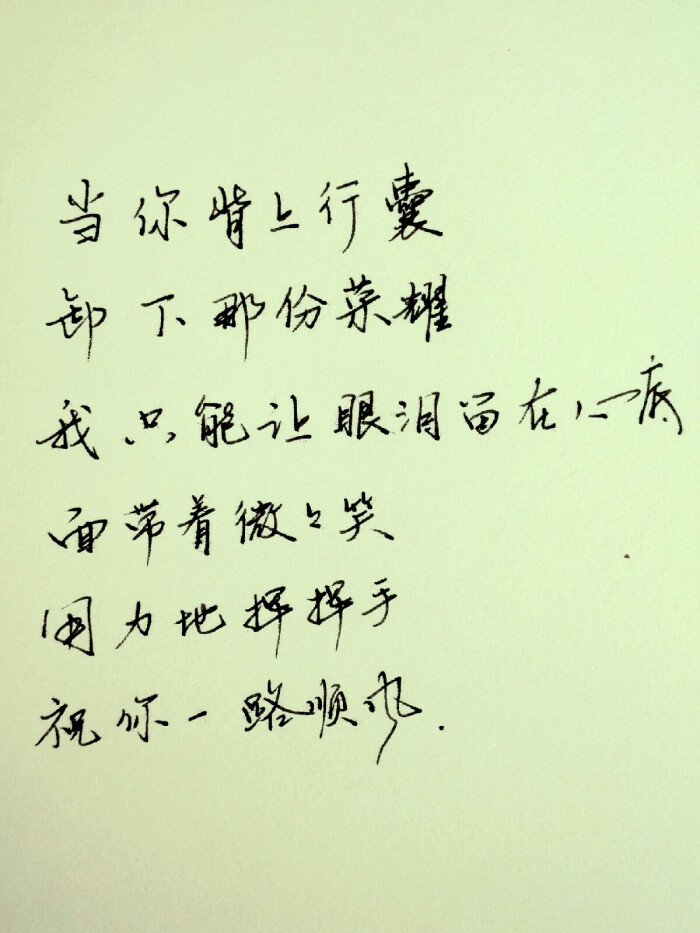 当你背上行囊
卸下那份荣耀
我只能让眼泪留在心底
面带着微々笑
用力地挥挥手
祝你一路顺风.